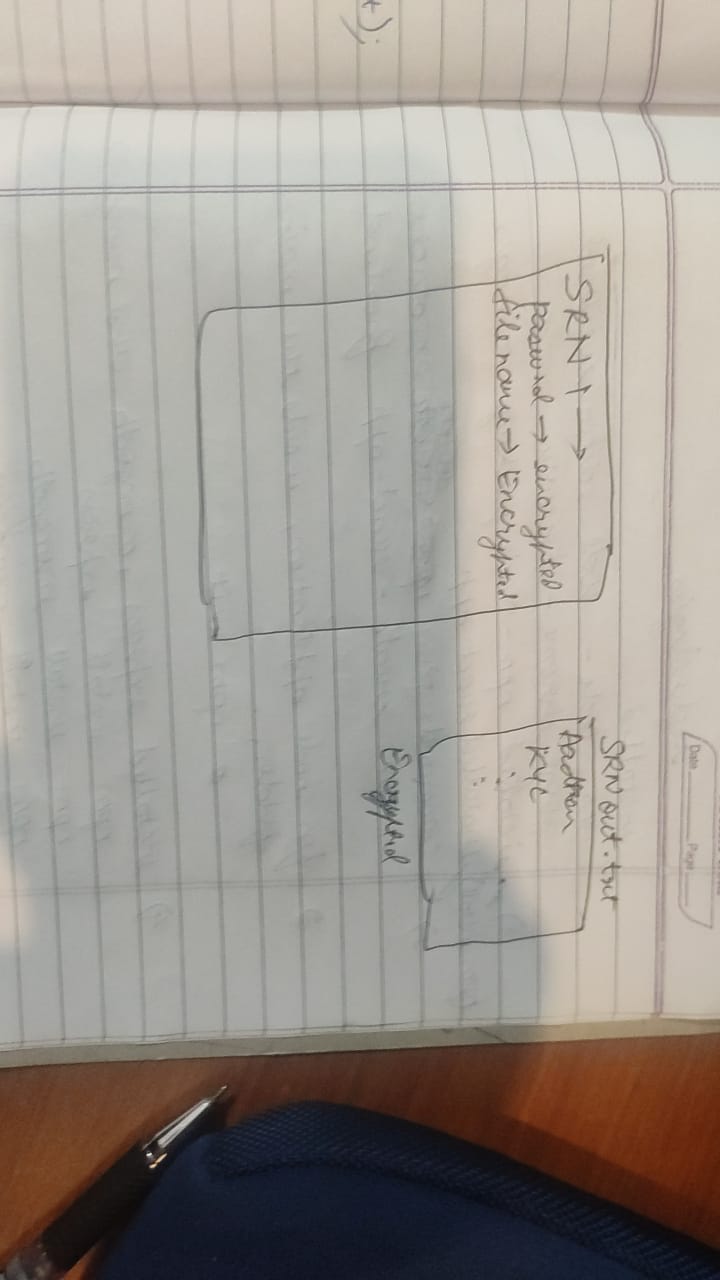 Date Page
SRN 1 →
password → encrypted
filename → Encrypted
SRN out.txt
Aadhar
KYC
:
:
Encrypted
t);